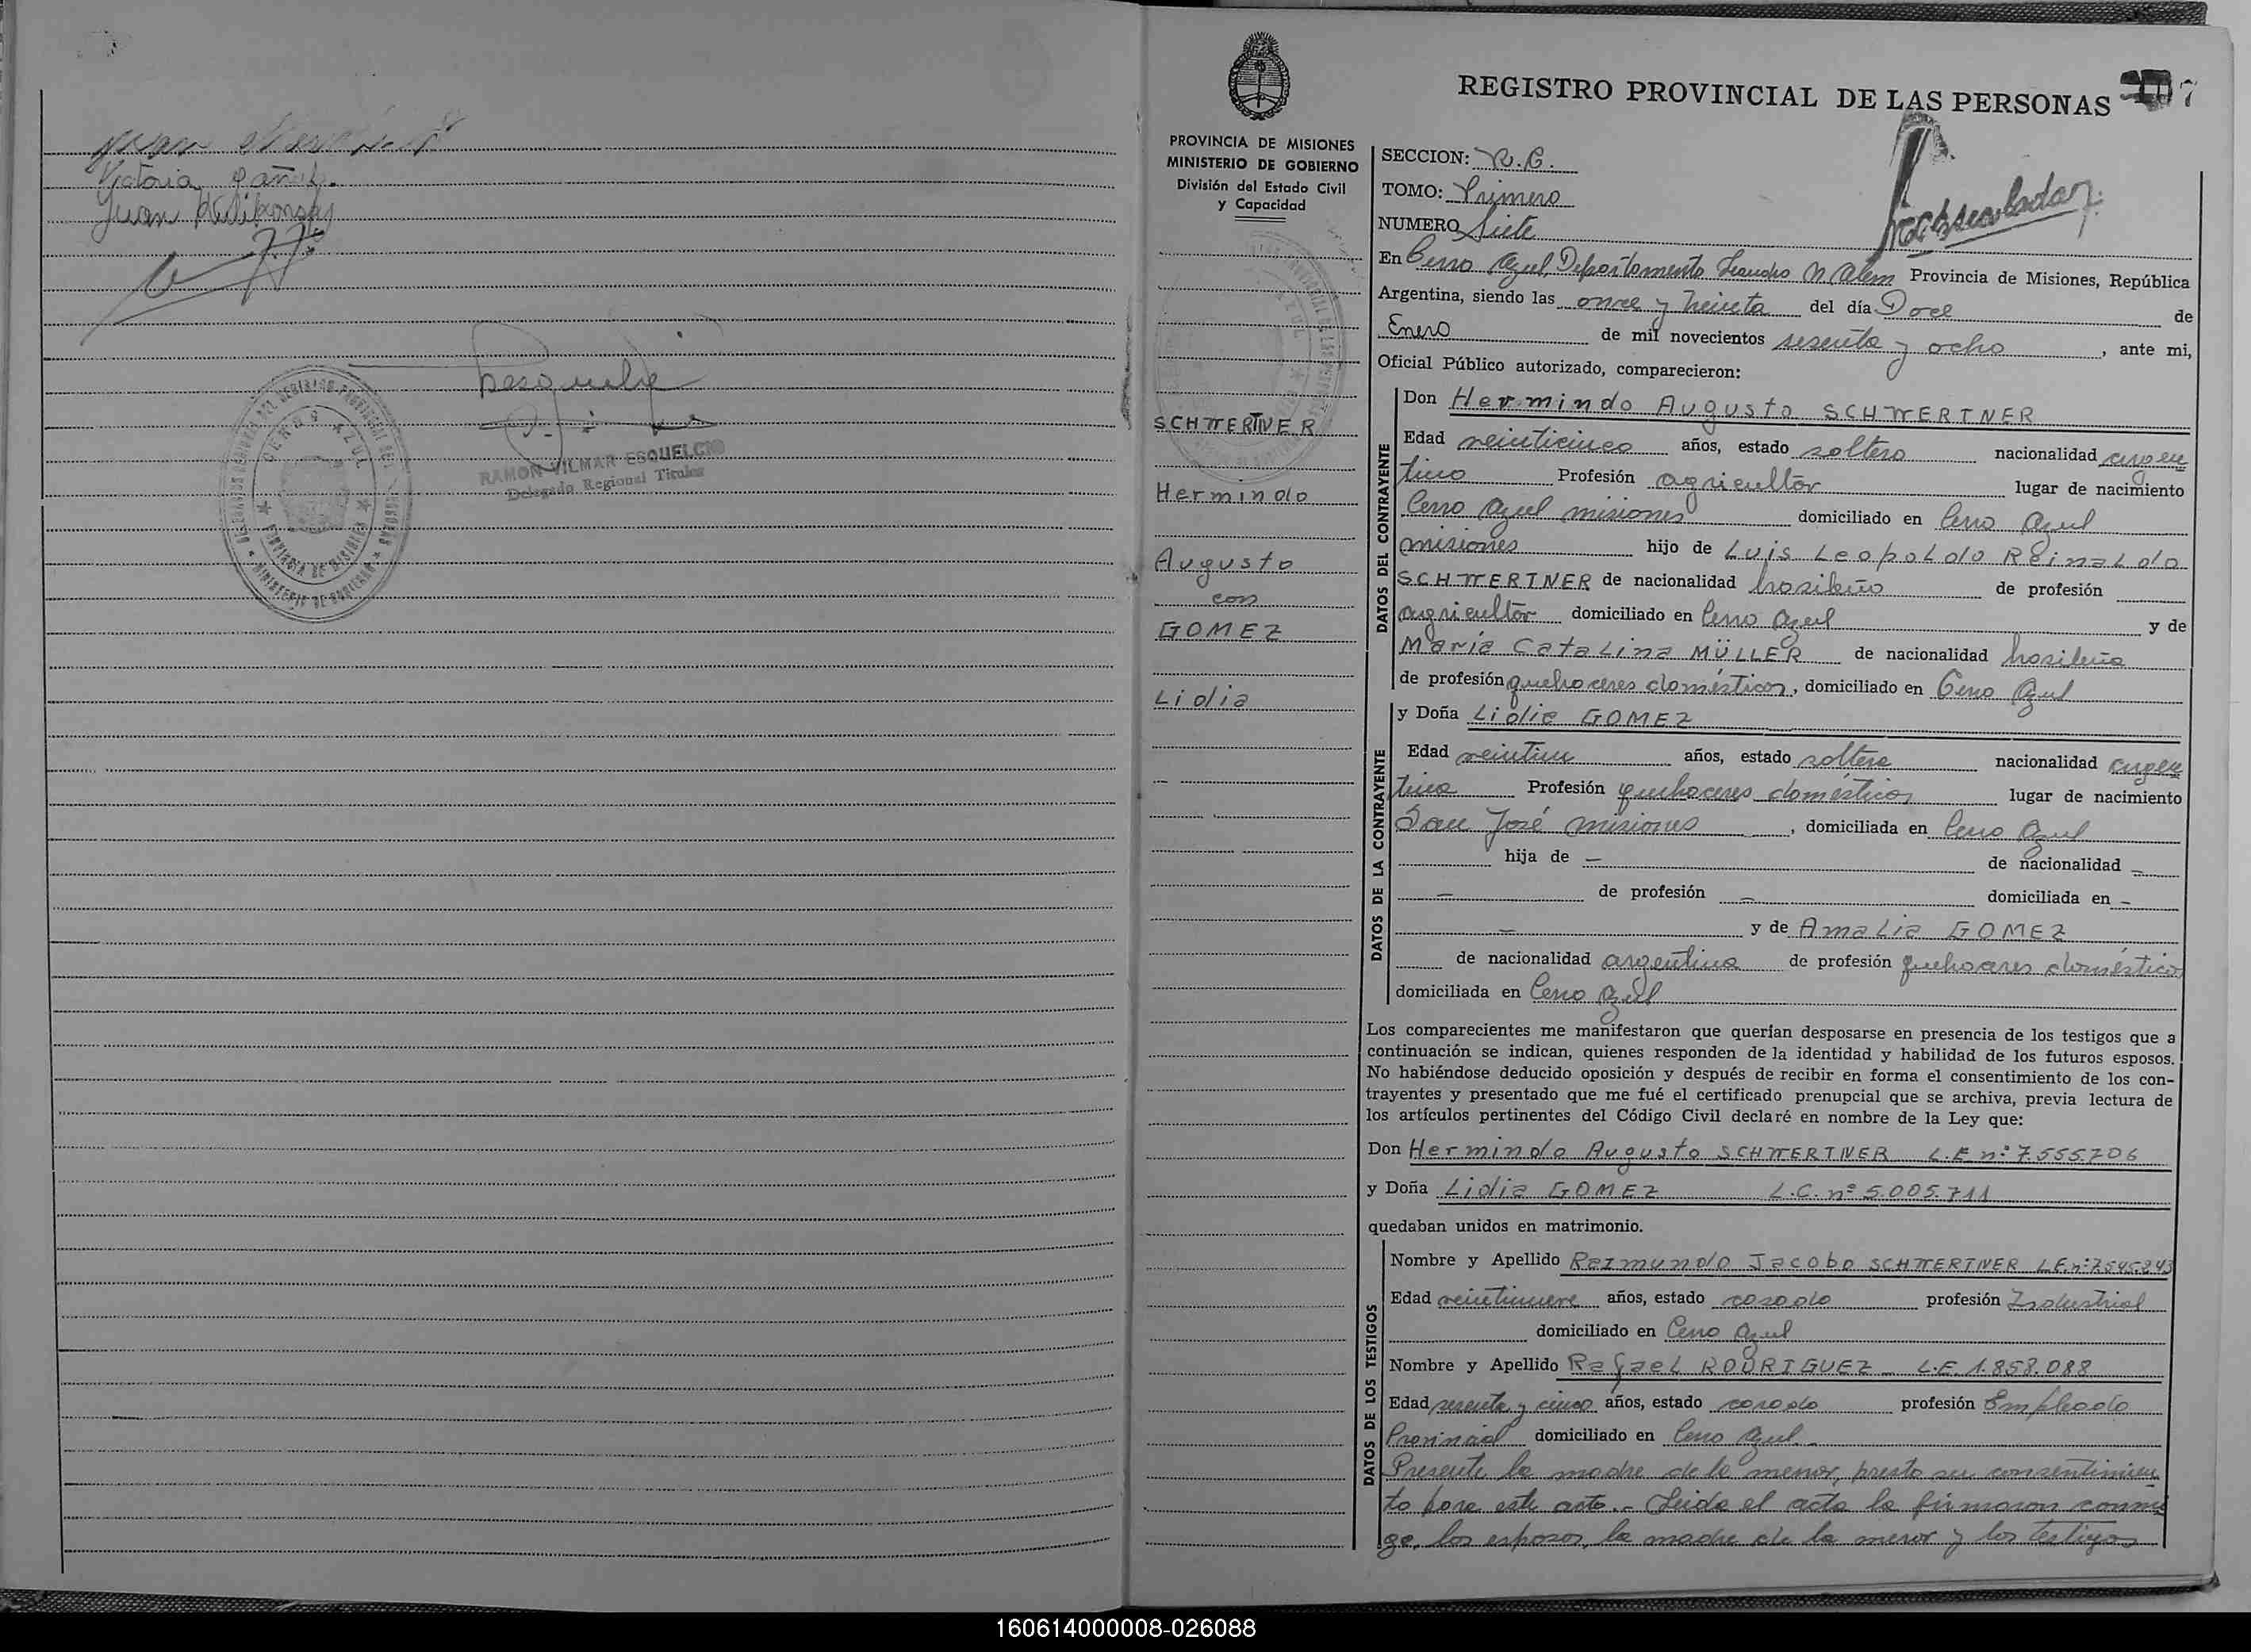 Victoria
Juan
RAMON VILMAR ESQUELCIO
Delegado Regional Titular
CERRO AZUL
PROVINCIA DE MISIONES
MINISTERIO DE GOBIERNO
REGISTRO PROVINCIAL DE LAS PERSONAS
7
PROVINCIA DE MISIONES
MINISTERIO DE GOBIERNO
División del Estado Civil
y Capacidad
SCHWERTNER
Hermindo
Augusto
con
GOMEZ
Lidia
SECCION: R.C.
TOMO: Primero
NUMERO Siete
En Cerro Azul, Departamento Leandro N Alem Provincia de Misiones, República
Argentina, siendo las once y treinta del día Doce de
Enero de mil novecientos sesenta y ocho, ante mi,
Oficial Público autorizado, comparecieron:
DATOS DEL CONTRAYENTE
Don Hermindo Augusto SCHWERTNER
Edad veinticinco años, estado soltero nacionalidad argen
tino Profesión agricultor lugar de nacimiento
Cerro Azul misiones domiciliado en Cerro Azul
misiones hijo de Luis Leopoldo Reinaldo
SCHWERTNER de nacionalidad brasileño de profesión
agricultor domiciliado en Cerro Azul y de
María Catalina MÜLLER de nacionalidad brasileña
de profesión quehaceres domésticos, domiciliado en Cerro Azul
DATOS DE LA CONTRAYENTE
y Doña Lidia GOMEZ
Edad veintiun años, estado soltera nacionalidad argen
tina Profesión quehaceres domésticos lugar de nacimiento
San José misiones, domiciliada en Cerro Azul
hija de – de nacionalidad –
– de profesión – domiciliada en –
– y de Amalia GOMEZ
de nacionalidad argentina de profesión quehaceres domésticos
domiciliada en Cerro Azul
Los comparecientes me manifestaron que querían desposarse en presencia de los testigos que a
continuación se indican, quienes responden de la identidad y habilidad de los futuros esposos.
No habiéndose deducido oposición y después de recibir en forma el consentimiento de los con-
trayentes y presentado que me fué el certificado prenupcial que se archiva, previa lectura de
los artículos pertinentes del Código Civil declaré en nombre de la Ley que:
Don Hermindo Augusto SCHWERTNER L.E nº 7.555.706
y Doña Lidia GOMEZ L.C. nº 5.005.711
quedaban unidos en matrimonio.
DATOS DE LOS TESTIGOS
Nombre y Apellido Raimundo Jacobo SCHWERTNER L.E. nº 7.545.243
Edad veintinueve años, estado casado profesión Industrial
domiciliado en Cerro Azul
Nombre y Apellido Rafael RODRIGUEZ L.E. 1.858.088
Edad sesenta y cinco años, estado casado profesión Empleado
Provincial domiciliado en Cerro Azul.
Presente la madre de la menor, presta su consentimien
to para este acto.- Leida el acta la firmaron conmi
go, los esposos, la madre de la menor y los testigos
160614000008-026088